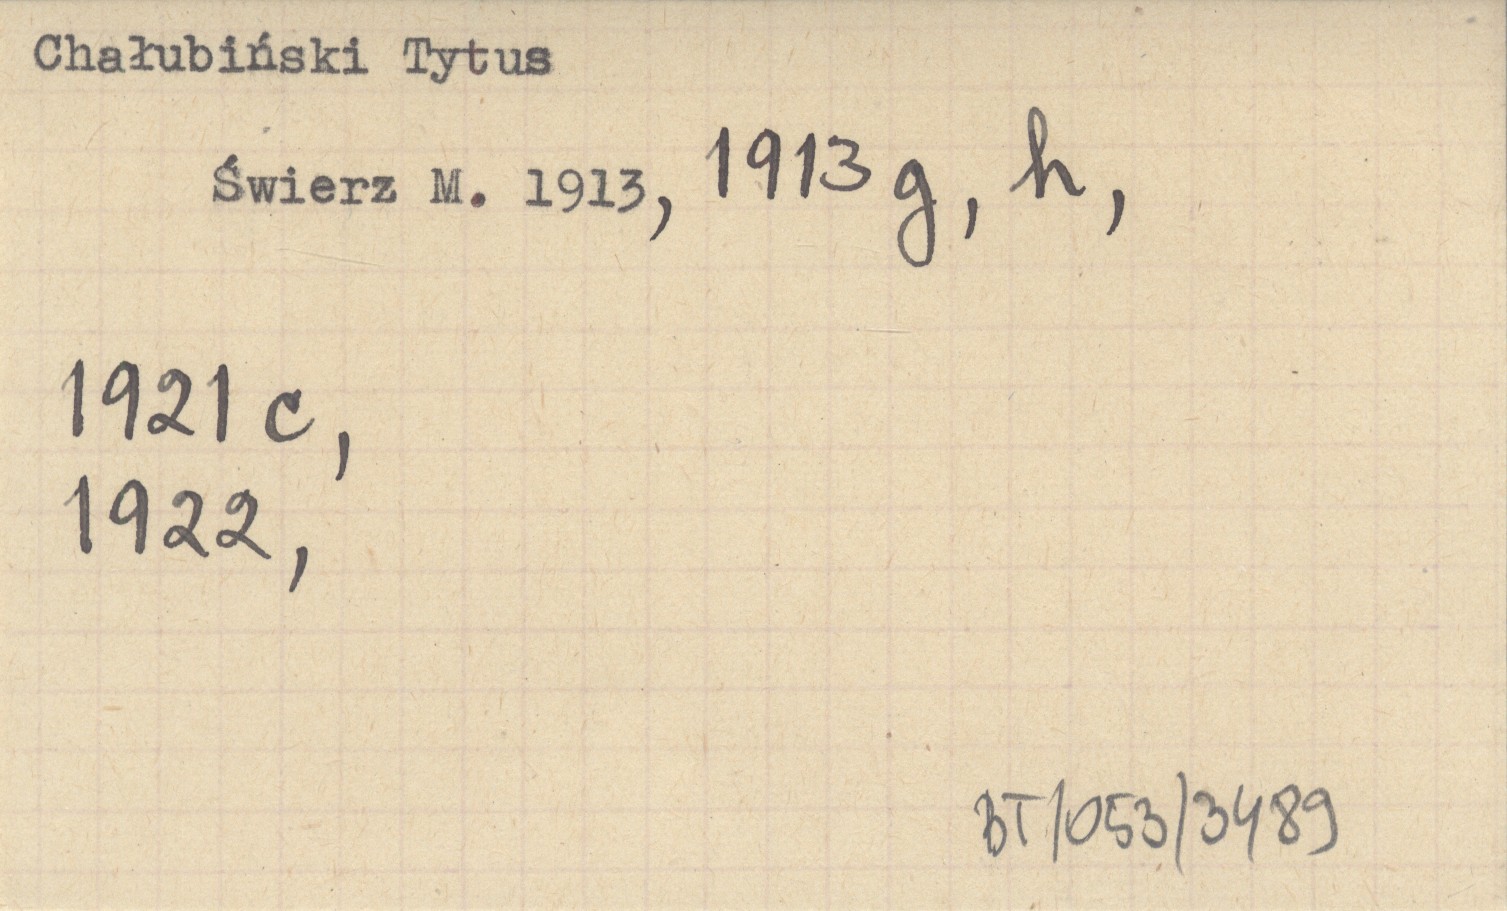 Chałubiński Tytus
Świerz M. 1913, 1913 g, h,
1921 c,
1922,
BT/053/3489